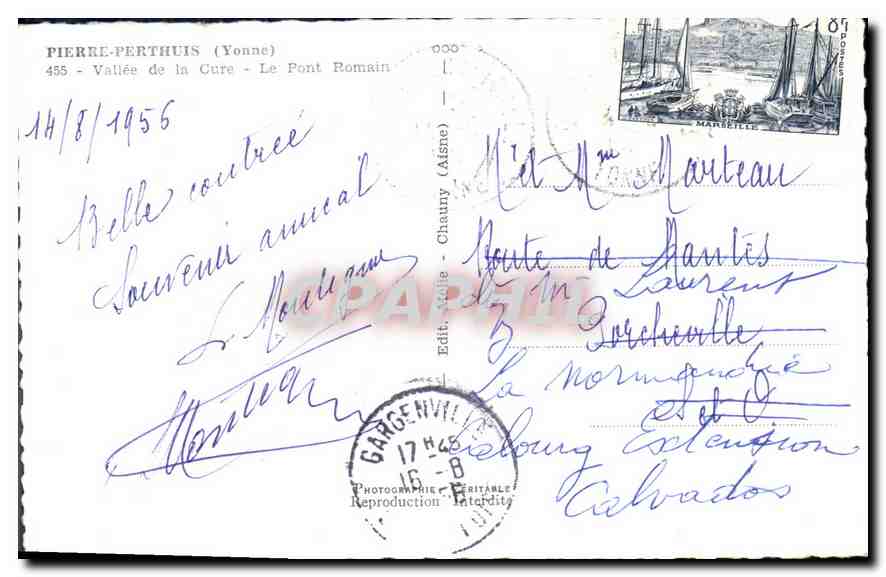 PIERRE-PERTHUIS (Yonne)
455 - Vallée de la Cure - Le Pont Romain
14/8/1956
Belle contrée
Souvenir amical
Edit. Molie - Chauny (Aisne)
CPAPHIL
8F
POSTES
MARSEILLE
YONNE
Mr et Mme Marteau
Route de Mantes
Laurent
Porcheville
La Normandie
S et O
Cabourg Extension
Calvados
GARGENVILLE
17H45
16-8
PHOTOGRAPHIE VÉRITABLE
Reproduction Interdite